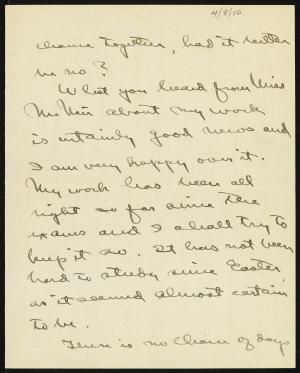 4/8/10
chance together, had it better
be no?
What you heard from Miss
McNair about my work
is certainly good news and
I am very happy over it.
My work has been all
right so far since the
exams and I shall try to
keep it so. It has not been
hard to study since Easter,
as it seemed almost certain
to be.
There is no chance of days